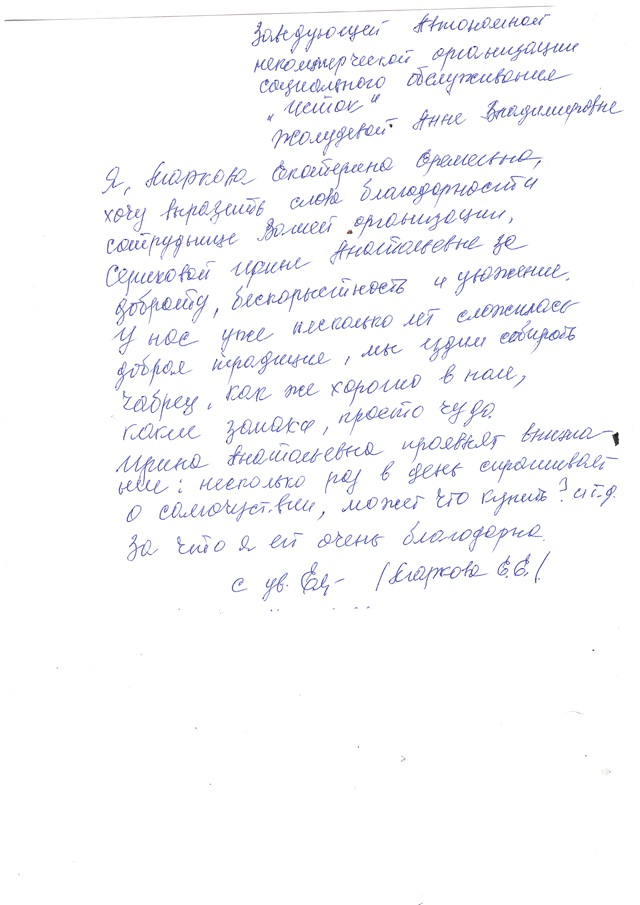 Заведующей Автономной
некоммерческой организации
социального обслуживания
"Исток"
Жолудевой Анне Владимировне
Я, Маркова Екатерина Еремеевна,
хочу выразить слова благодарности
сотруднице Вашей организации,
Сериковой Ирине Анатольевне за
доброту, бескорыстность и уважение.
У нас уже несколько лет сложилась
добрая традиция, мы ездим собирать
чабрец. Как же хорошо в поле,
какие запахи, просто чудо.
Ирина Анатольевна проявляет внима-
ние: несколько раз в день спрашивает
о самочуствии, может что купить? и т.д.
За что я ей очень благодарна.
С ув. /Маркова Е.Е./